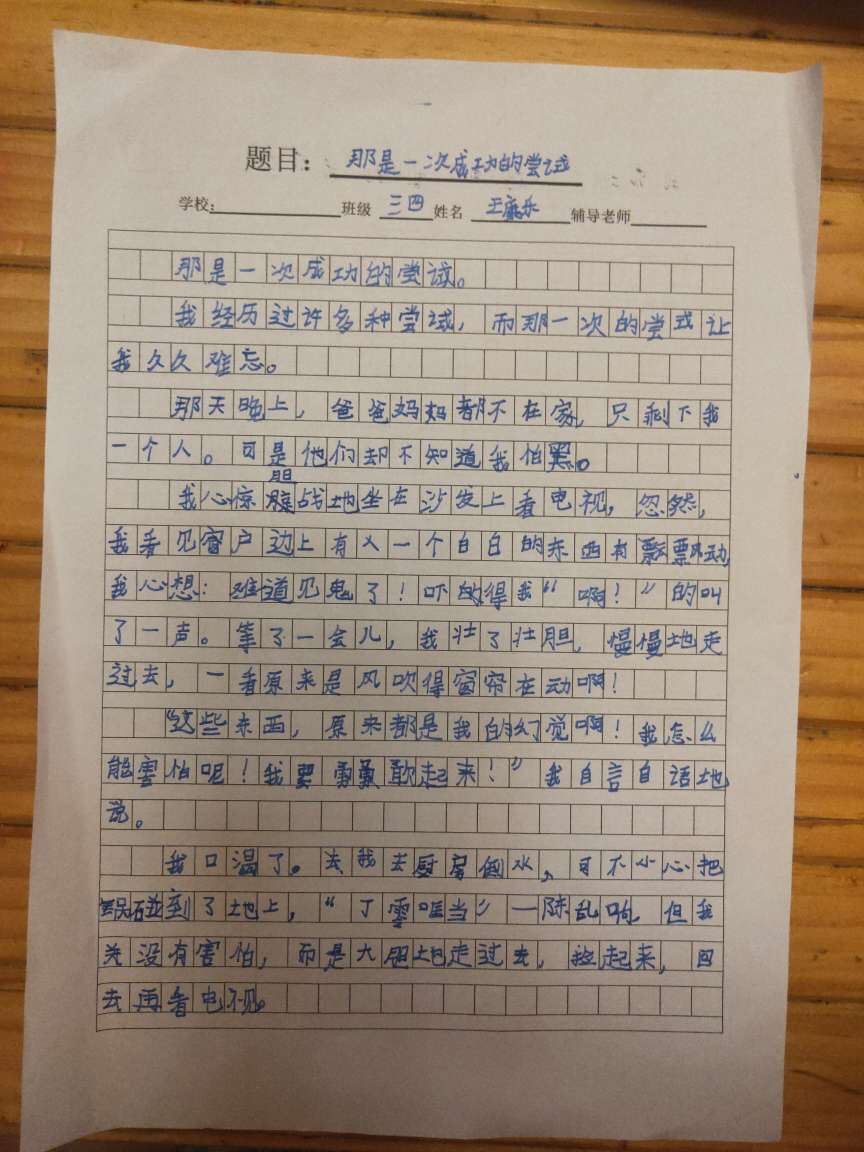 题目：那是一次成功的尝试
学校： 班级 三四 姓名 王 乐 辅导老师
那是一次成功的尝试。
我经历过许多种尝域，而那一次的尝式让
我久久难忘。
那天晚上，爸爸妈妈都不在家，只剩下我
一个人。可是他们却不知道我怕黑。
胆
我心惊 战地坐在沙发上看电视，忽然，
我看见窗户边上有 一个白白的东西有飘飘动，
我心想：难道见鬼了！吓的得我“啊！”的叫
了一声。等了一会儿，我壮了壮胆，慢慢地走
过去，一看原来是风吹得窗帘在动啊！
“这些东西，原来都是我的幻觉啊！我怎么
能害怕呢！我要勇敢起来！”我自言自语地
说。
我口温了。去我去厨房倒水，可不小心把
锅碰到了地上，“丁零咣当”一陈乱响，但我
没有害怕，而是大胆地走过去，捡起来，回
去再看电视。